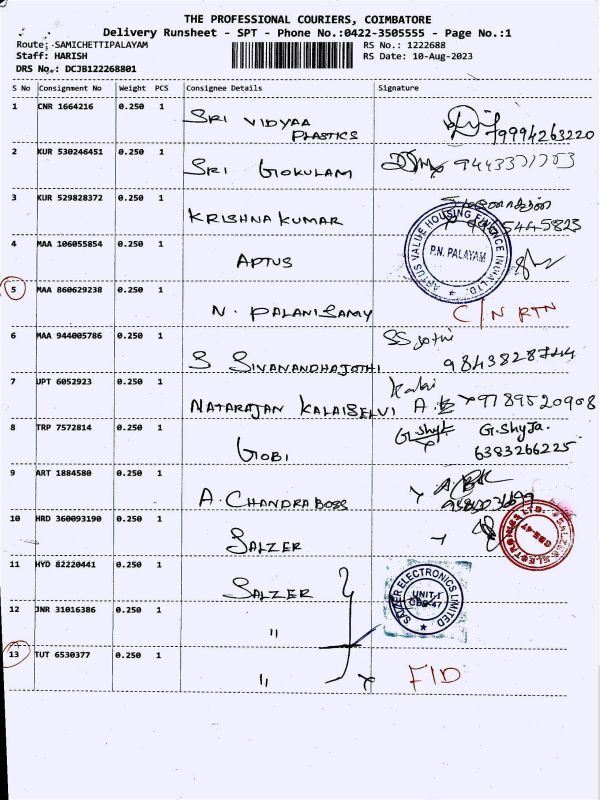 THE PROFESSIONAL COURIERS, COIMBATORE
Delivery Runsheet - SPT - Phone No.:0422-3505555 - Page No.:1
Route: SAMICHETTIPALAYAM RS No.: 1222688
Staff: HARISH RS Date: 10-Aug-2023
DRS No.: DCJB122268801
S No Consignment No Weight PCS Consignee Details Signature
1 CNR 1664216 0.250 1 SRI VIDYAA PLASTICS 9994263220
2 KUR 530246451 0.250 1 SRI GOKULAM
3 KUR 529828372 0.250 1 KRISHNA KUMAR
4 MAA 106055854 0.250 1 APTUS
APTUS VALUE HOUSING FINANCE INDIA LTD.
P.N. PALAYAM
5 MAA 860629238 0.250 1 N. PALANISAMY C/N RTN
6 MAA 944005786 0.250 1 S SIVANANDHAJOTHI SS jothi
7 UPT 6052923 0.250 1 NATARAJAN KALAISELVI 9789520908
8 TRP 7572814 0.250 1 GOBI G. Shyja.
6383266225
9 ART 1884580 0.250 1 A. CHANDRA BOSS
10 HRD 360093190 0.250 1 SALZER
SALZER ELECTRONICS LTD.
GBS-47
11 HYD 82220441 0.250 1 SALZER
SALZER ELECTRONICS LIMITED
UNIT-I
12 JNR 31016386 0.250 1 "
13 TUT 6530377 0.250 1 " FID